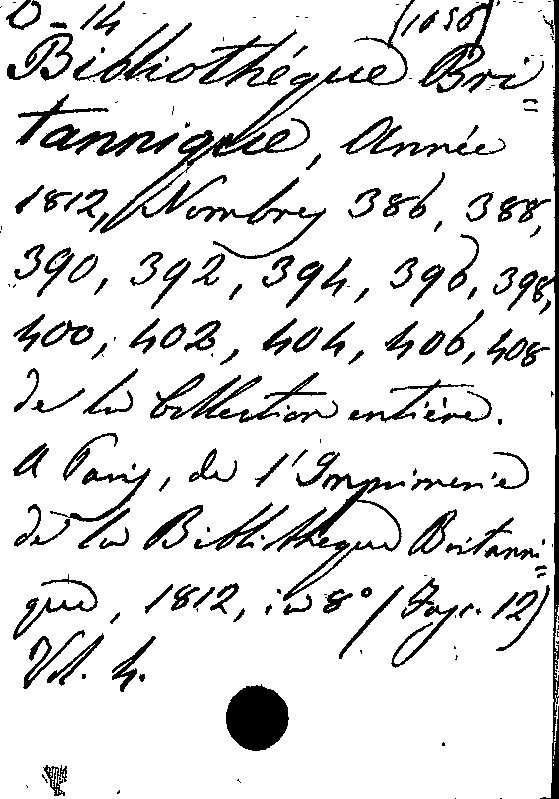 D-14 (1656)
Bibliothéque Bri=
tannique, Année
1812, Nombres 386, 388,
390, 392, 394, 396, 398,
400, 402, 404, 406, 408
de la Collection entière.
A Paris, de l'Imprimerie
de la Bibliothèque Britanni=
que, 1812, in 8° (Fasc. 12)
Vol. 4.